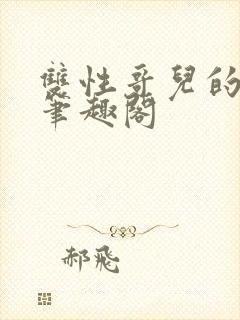 雙性哥兒的
筆趣閣
郝飛